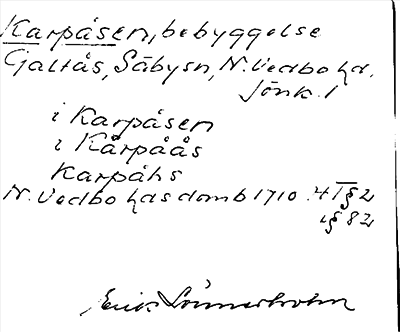 Karpåsen, bebyggelse
Galtås, Säbysn, N. Vedbo hd.
Jönk. l
i Karpåsen
i Kårpåås
Karpåhs
N. Vedbo hds domb 1710. 4/I § 2
§ 82
Erik